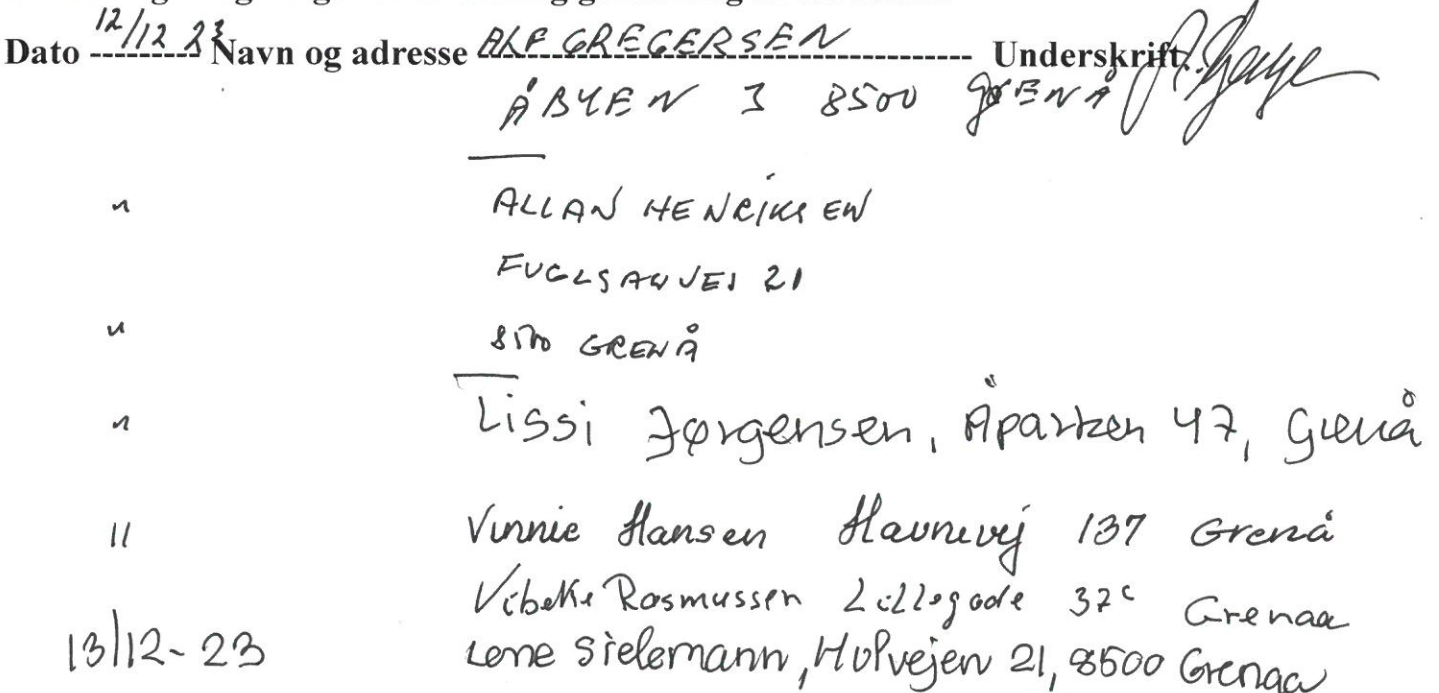 Dato 12/12 23 Navn og adresse ALF GREGERSEN Underskrift
ÅBYEN 3 8500 GRENÅ
" ALLAN HENRIKSEN
FUGLSANVEJ 21
" 8500 GRENÅ
" Lissi Jørgensen, Åparken 47, Grenå
" Vinnie Hansen Havnevej 137 Grenå
Vibeke Rasmussen Lillegade 37c Grenaa
13/12-23 Lone Sielemann, Holvejen 21, 8500 Grenaa